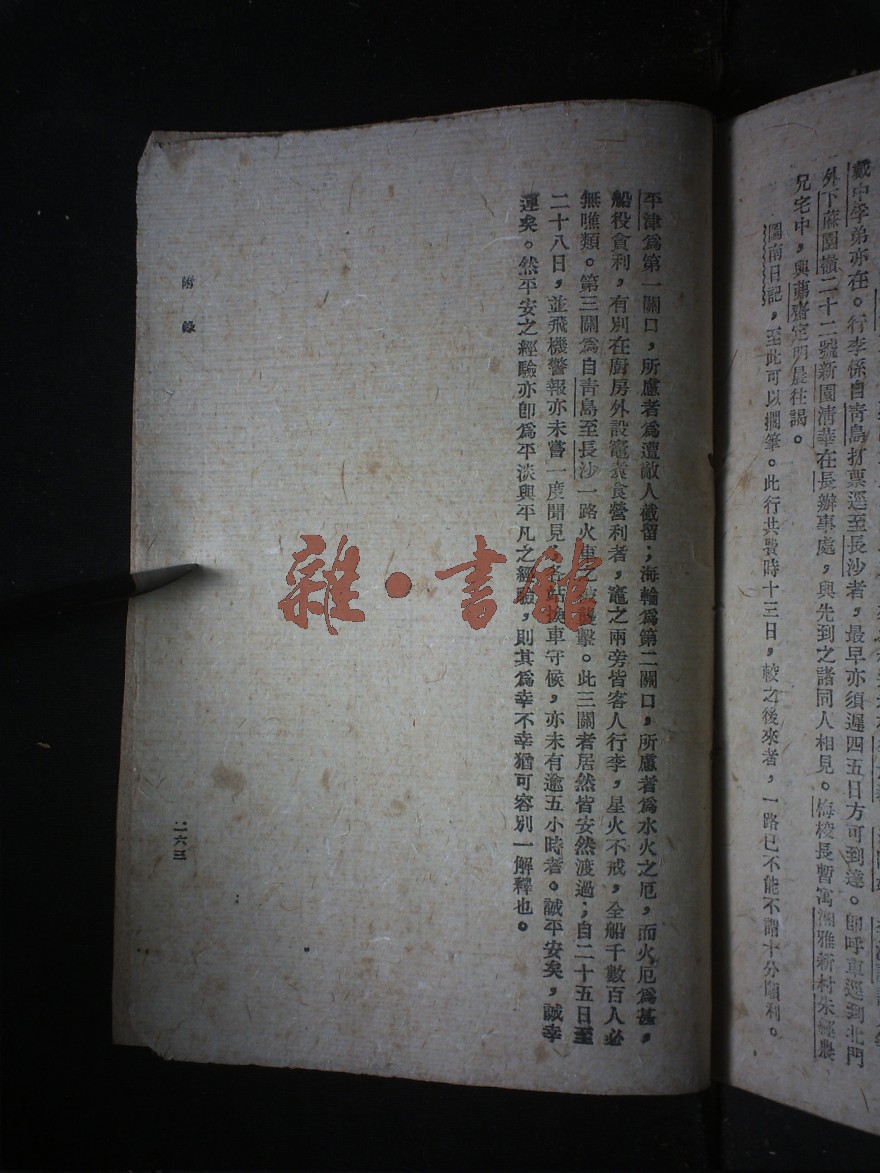 戴中孚弟亦在。行李係自青島打票逕至長沙者，最早亦須遲四五日方可到達。卽呼車逕到北門
外下蔴園嶺二十二號新園淸華在長辦事處，與先到之諸同人相見。梅校長暫寓湘雅新村朱經農
兄宅中，與蕭齋定明晨往謁。
圖南日記，至此可以擱筆。此行共費時十三日，較之後來者，一路已不能不謂十分順利。
平津爲第一關口，所慮者爲遭敵人截留；海輪爲第二關口，所慮者爲水火之厄，而火厄爲甚，
船役貪利，有別在廚房外設竈煮食營利者，竈之兩旁皆客人行李，星火不戒，全船千數百人必
無噍類。第三關爲自靑島至長沙一路火車之被襲擊。此三關者居然皆安然渡過；自二十五日至
二十八日，並飛機警報亦未嘗一度聞見，各站換車守候，亦未有逾五小時者。誠平安矣，誠幸
運矣。然平安之經驗亦卽爲平淡與平凡之經驗，則其爲幸不幸猶可容別一解釋也。
附錄
二六三
雜·書館